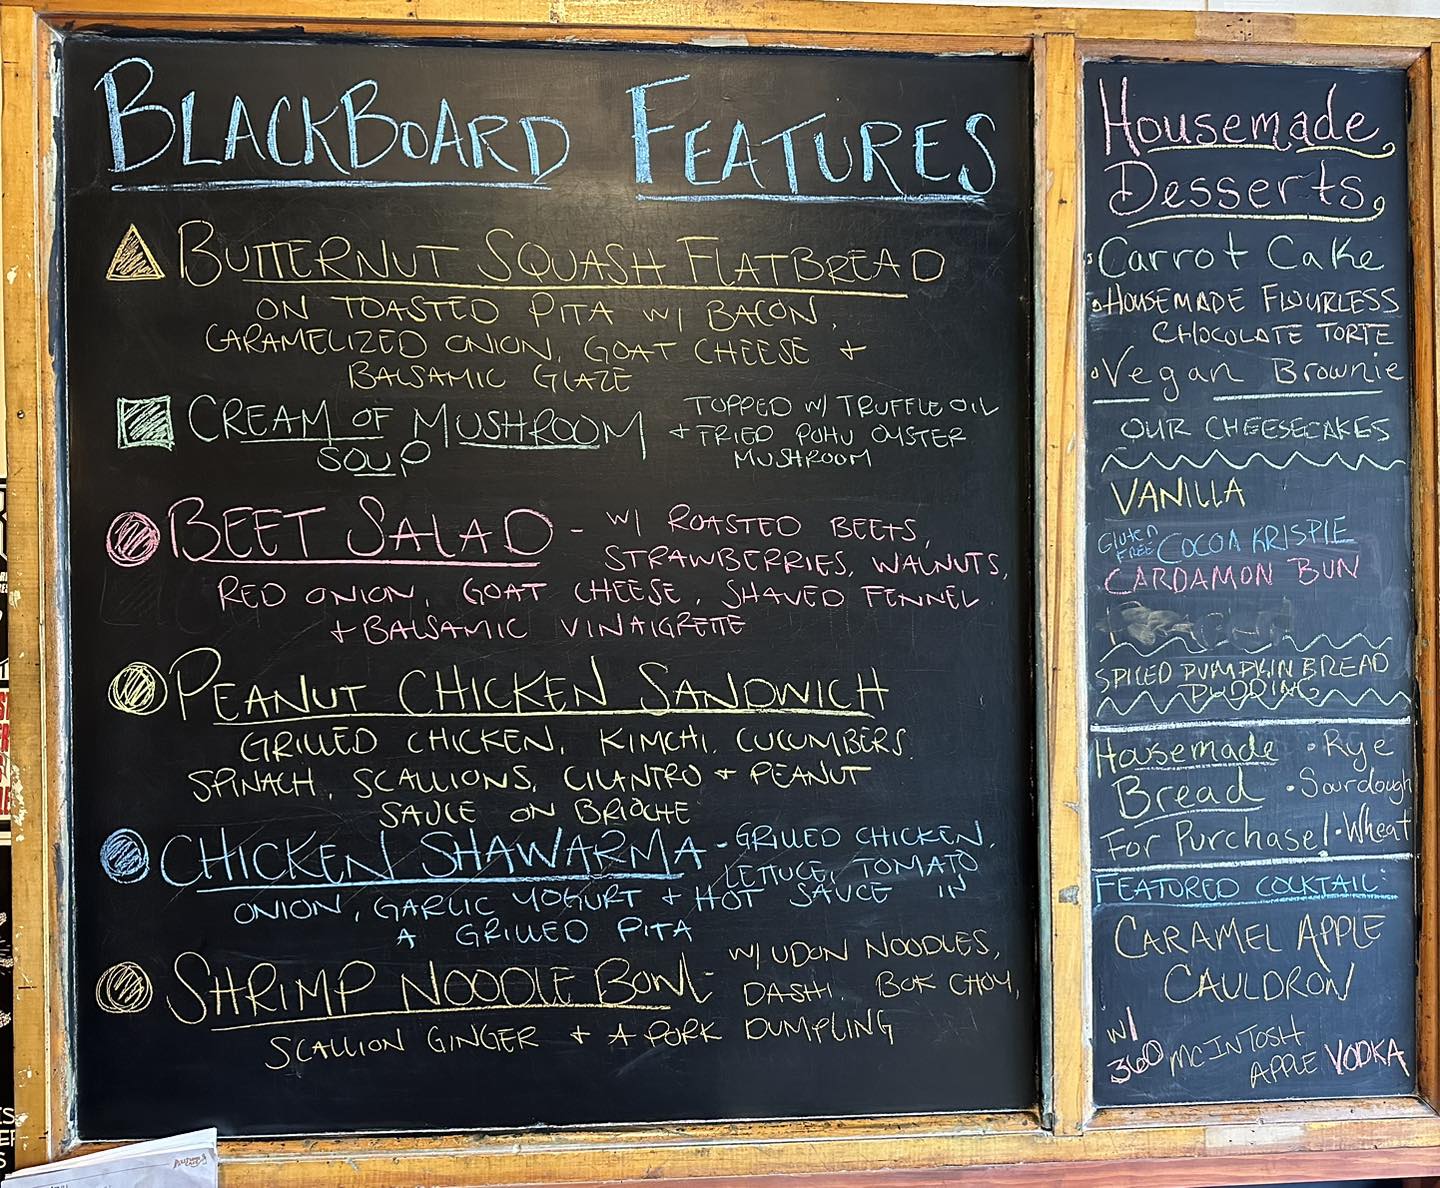 BLACKBOARD FEATURES
BUTTERNUT SQUASH FLATBREAD
ON TOASTED PITA W/ BACON,
CARAMELIZED ONION, GOAT CHEESE +
BALSAMIC GLAZE
CREAM OF MUSHROOM
SOUP
TOPPED W/ TRUFFLE OIL
+ FRIED POHU OYSTER
MUSHROOM
BEET SALAD - W/ ROASTED BEETS,
STRAWBERRIES, WALNUTS,
RED ONION, GOAT CHEESE, SHAVED FENNEL
+ BALSAMIC VINAIGRETTE
PEANUT CHICKEN SANDWICH
GRILLED CHICKEN, KIMCHI, CUCUMBERS
SPINACH, SCALLIONS, CILANTRO + PEANUT
SAUCE ON BRIOCHE
CHICKEN SHAWARMA - GRILLED CHICKEN,
LETTUCE, TOMATO
ONION, GARLIC YOGURT + HOT SAUCE IN
A GRILLED PITA
SHRIMP NOODLE BOWL - W/ UDON NOODLES,
DASHI, BOK CHOY,
SCALLION GINGER + A PORK DUMPLING
Housemade
Desserts
Carrot Cake
HOUSEMADE FLOURLESS
CHOCOLATE TORTE
Vegan Brownie
OUR CHEESECAKES
VANILLA
Gluten FREE COCOA KRISPIE
CARDAMON BUN
SPICED PUMPKIN BREAD
PUDDING
Housemade • Rye
Bread • Sourdough
For Purchase! • Wheat
FEATURED COCKTAIL:
CARAMEL APPLE
CAULDRON
W/
360 MCINTOSH
APPLE VODKA